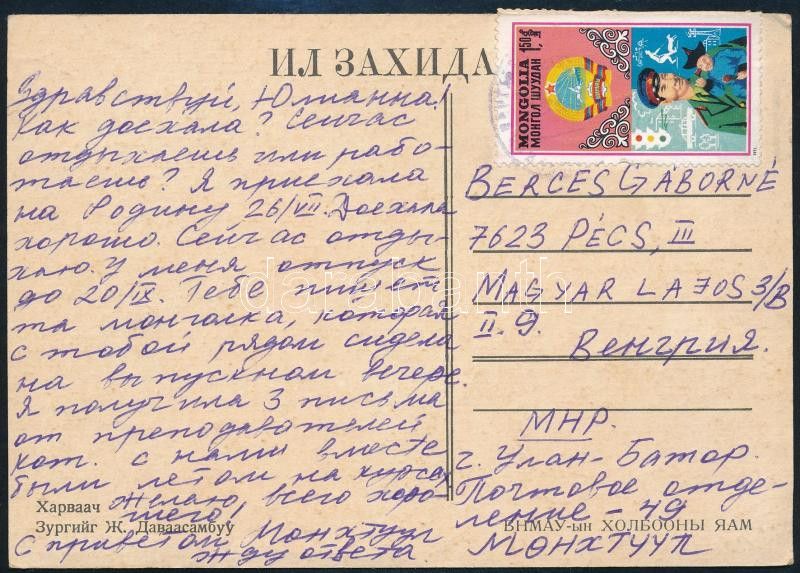 ИЛ ЗАХИДА
MONGOLIA
МОНГОЛ ШУУДАН
1,50
Здравствуй, Юлианна!
Как доехала? Сейчас
отдыхаешь или рабо-
таешь? Я приехала
на Родину 26/VII. Доехала
хорошо. Сейчас отды-
хаю. У меня отпуск
до 20/IX. Тебе пишет
та монголка, которая
с тобой рядом сидела
на выпускном вечере.
Я получила 3 письма
от преподавателей
кот. с нами вместе
были летом на курсах
Желаю всего хоро-
шего!
С приветом Мөнхтуул
Жду ответа.
Харваач
Зургийг Ж. Даваасамбуу
BERCES GÁBORNÉ
7623 PÉCS, III
MAGYAR LAJOS 3/B
II. 9.
Венгрия.
МНР.
г. Улан-Батор.
Почтовое отде-
ление - 49
Мөнхтуул
БНМАУ-ын ХОЛБООНЫ ЯАМ
darabanth